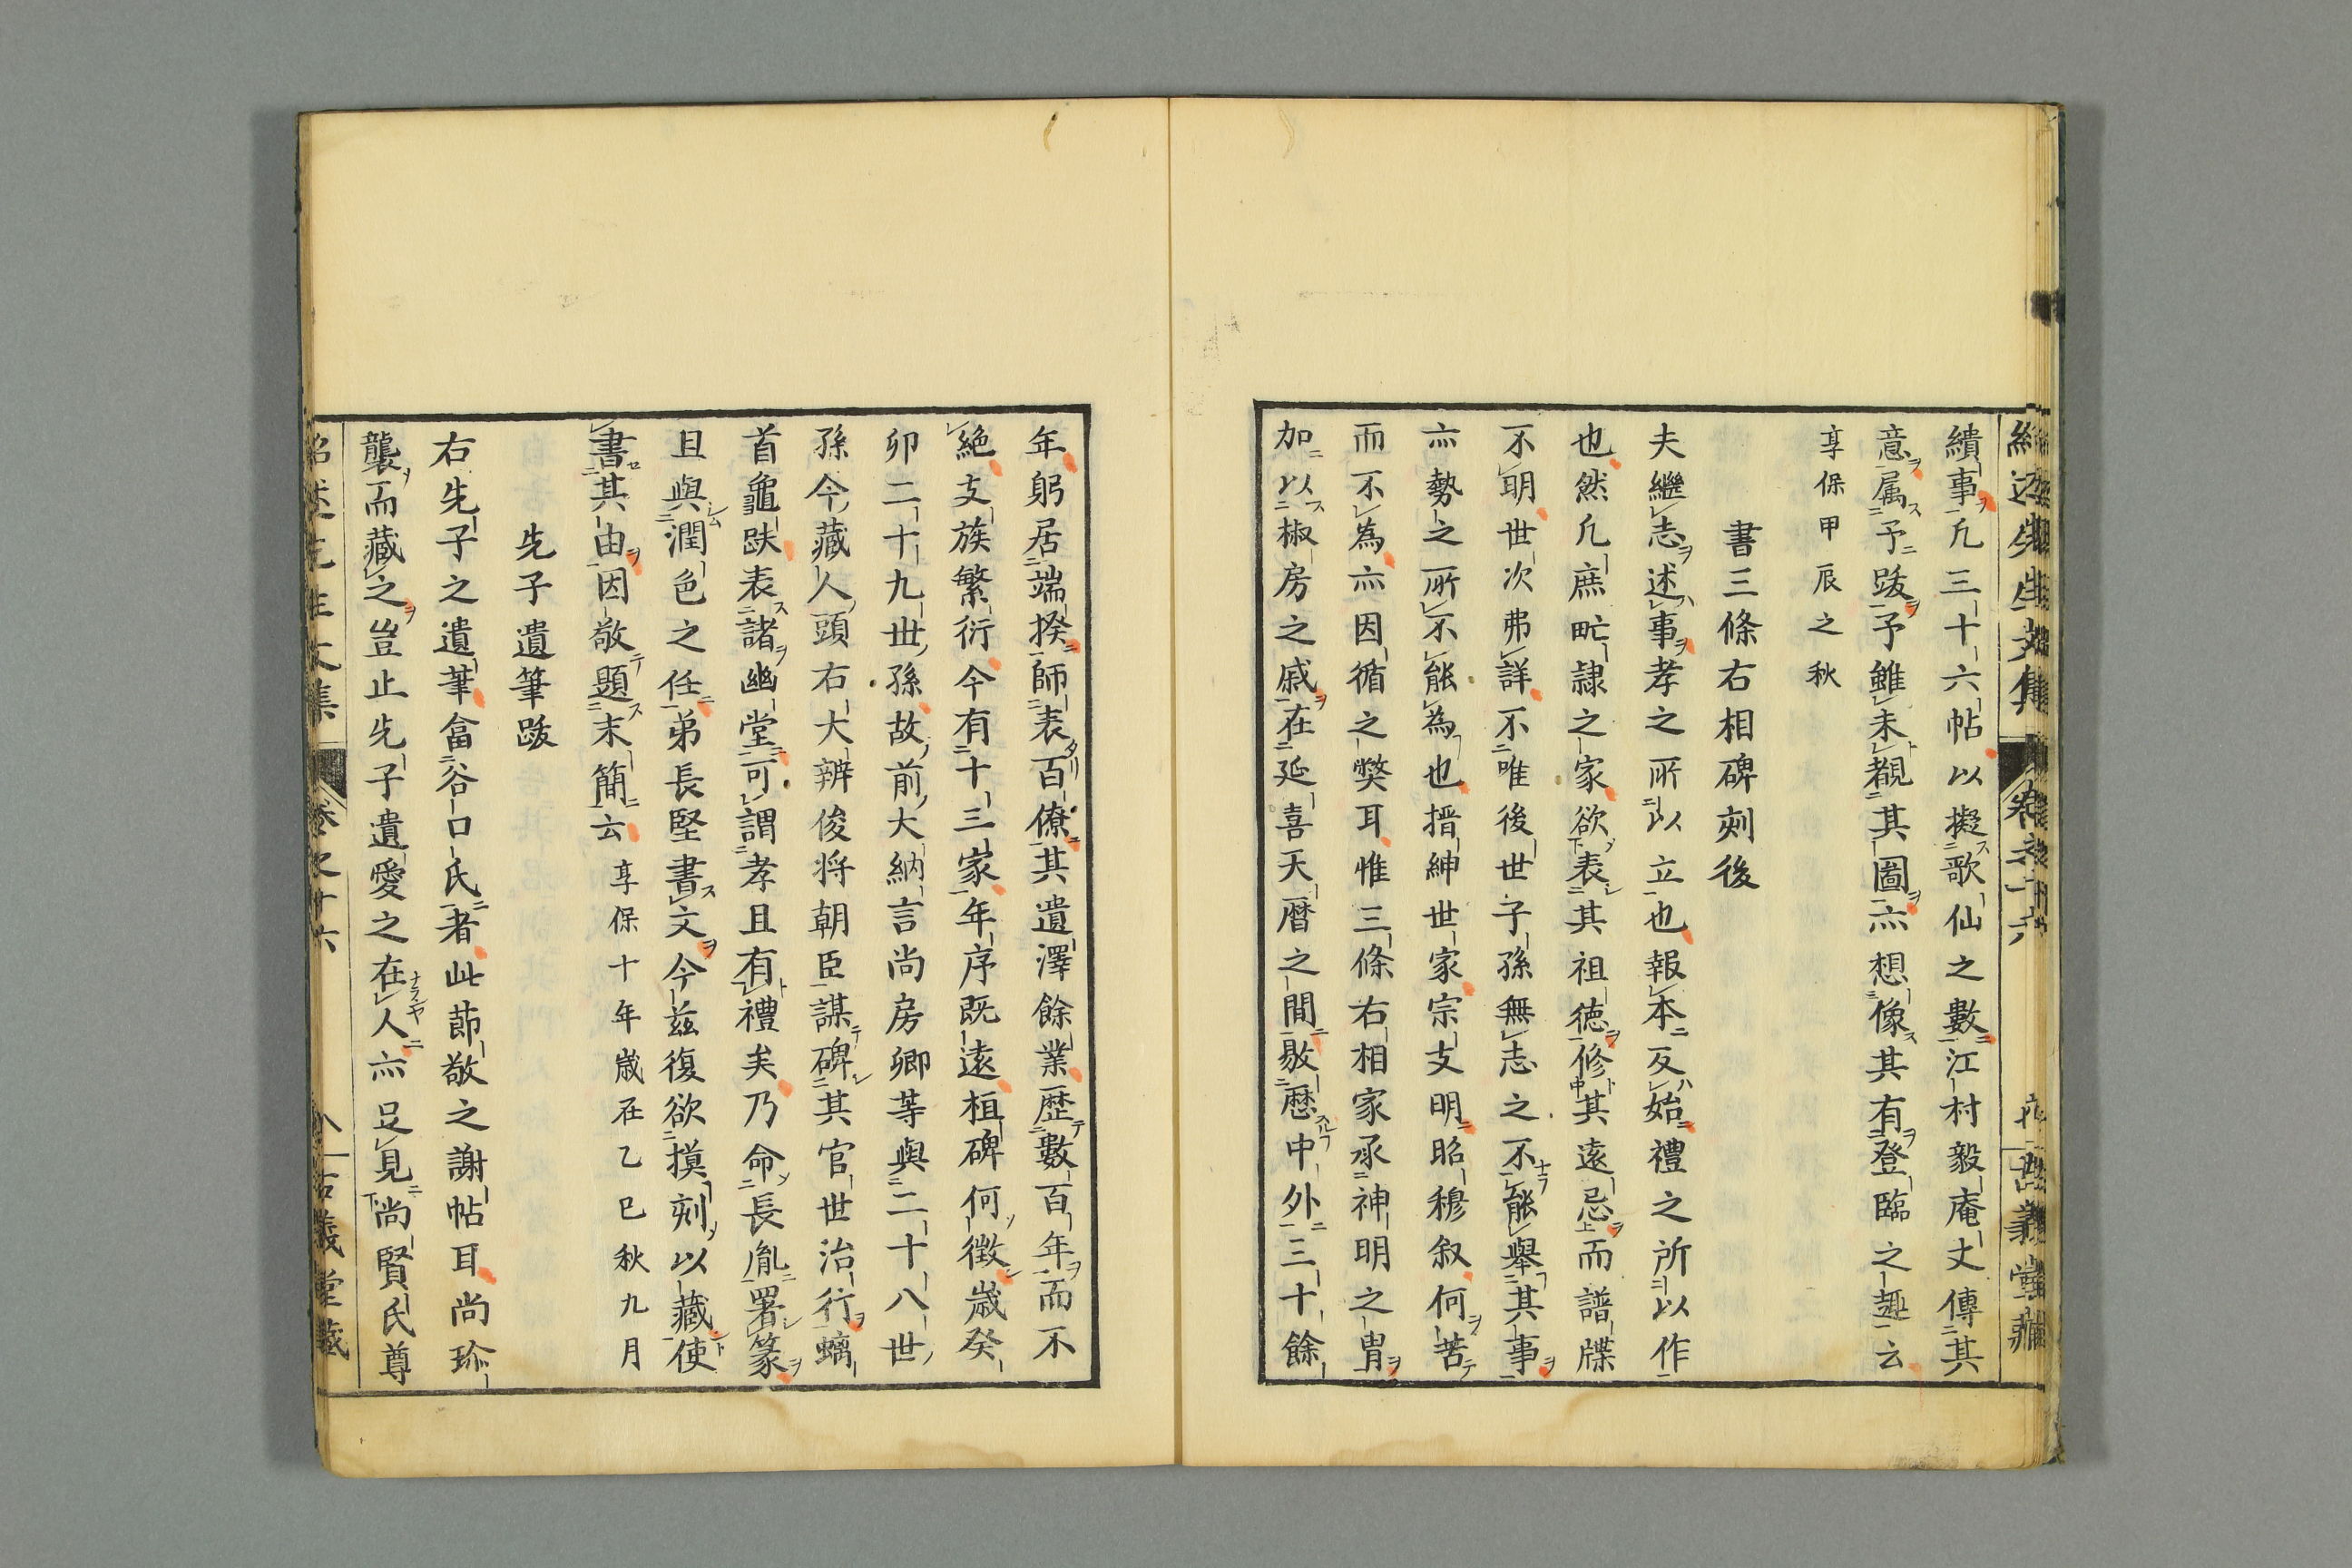 績事凢三十六帖以擬歌仙之數江村毅庵丈傳其
意属予跋予雖未覩其圖亦想像其有登臨之趣云
享保甲辰之秋
書三條右相碑刻後
夫繼志述事孝之所以立也報本反始禮之所以作
也然凢庶甿隷之家欲表其祖徳修其遠忌而譜牒
不明世次弗詳不唯後世子孫無志之不能舉其事
亦勢之所不能為也搢紳世家宗支明昭穆叙何苦
而不為亦因循之獘耳惟三條右相家承神明之胄
加以椒房之戚在延喜天暦之間敭歴中外三十餘
年躬居端揆師表百僚其遺澤餘業歴數百年而不
絶支族繁衍今有十三家年序既遠植碑何徴歳癸
卯二十九世孫故前大納言尚房卿等與二十八世
孫今藏人頭右大辨俊将朝臣謀碑其官世治行螭
首龜趺表諸幽堂可謂孝且有禮矣乃命長胤署篆
且與潤色之任弟長堅書文今茲復欲摸刻以藏使
書其由因敬題末簡云 享保十年歳在乙巳秋九月
先子遺筆跋
右先子之遺筆畣谷口氏者此莭敬之謝帖耳尚珍
襲而藏之豈止先子遺愛之在人亦足見尚賢氏尊
紹述先生文集 卷之十六 八 古義堂藏